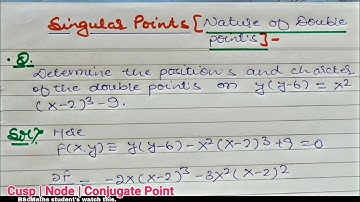 Singular Points [Nature of Double
points]-
Q.
Determine the positions and charcter
of the double points on y(y-6) = x²
(x-2)³-9.
Solⁿ. Here
f(x,y) ≡ y(y-6) - x²(x-2)³ +9 = 0
∂f = -2x(x-2)³ - 3x²(x-2)²
Cusp | Node | Conjugate Point
BScMaths student's watch this.